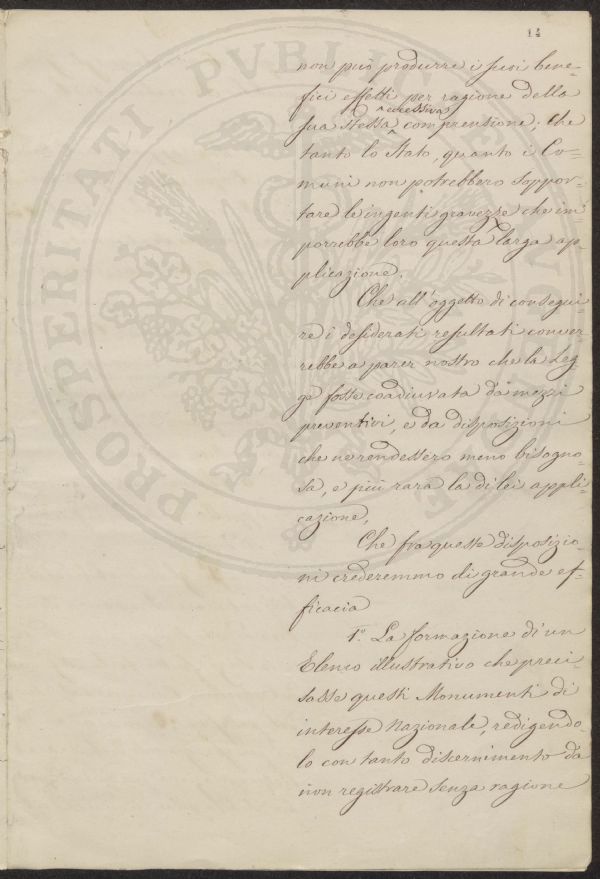 14
non può produrre i suoi bene-
fici effetti per ragione della
sua stessa eccessiva comprensione; che
tanto lo Stato, quanto i Co-
muni non potrebbero soppor-
tare le ingenti gravezze che im-
porrebbe loro questa larga ap-
plicazione.
Che all'oggetto di consegui-
re i desiderati resultati conver-
rebbe a parer nostro che la Leg-
ge fosse coadiuvata da mezzi
preventivi, e da disposizioni
che ne rendessero meno bisogno-
sa, e più rara la di lei appli-
cazione,
Che fra queste disposizio-
ni crederemmo di grande ef-
ficacia
1º. La formazione di un
Elenco illustrativo che preci-
sasse questi Monumenti di
interesse Nazionale, redigendo-
lo con tanto discernimento da
non registrare senza ragione
PROSPERITATI PVBLIC